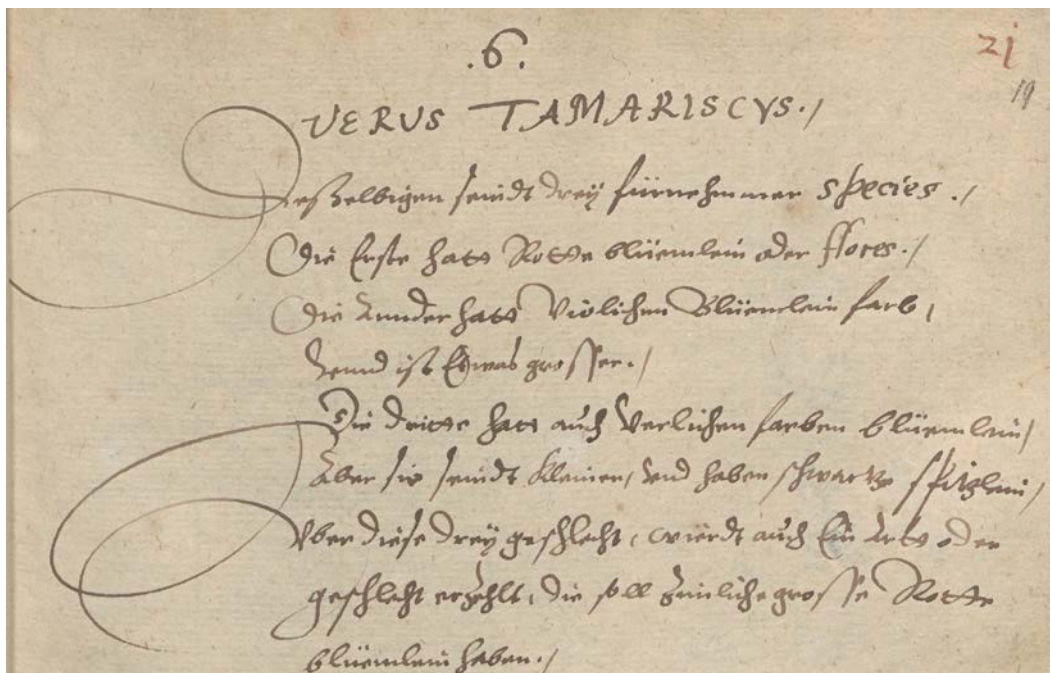 .6.
21
19
VERUS TAMARISCVS./
Desselbigen seindt drey fürnehmmer species ./
Die Erste hatt Rotte blüemlein oder flores./
Die Annder hatt Violichen Blüemlein farb,
Vnnd ist Etwas grosser./
Die dritte hatt auch Verlichen farben blüemlein/
Aber sie seindt kleiner/ vnd haben schwartze spitzlein/
Vber diese drey geschlecht, wierdt auch Ein Artt oder
geschlecht erzehlt, die soll zimliche grosse Rotte
blüemlein haben./